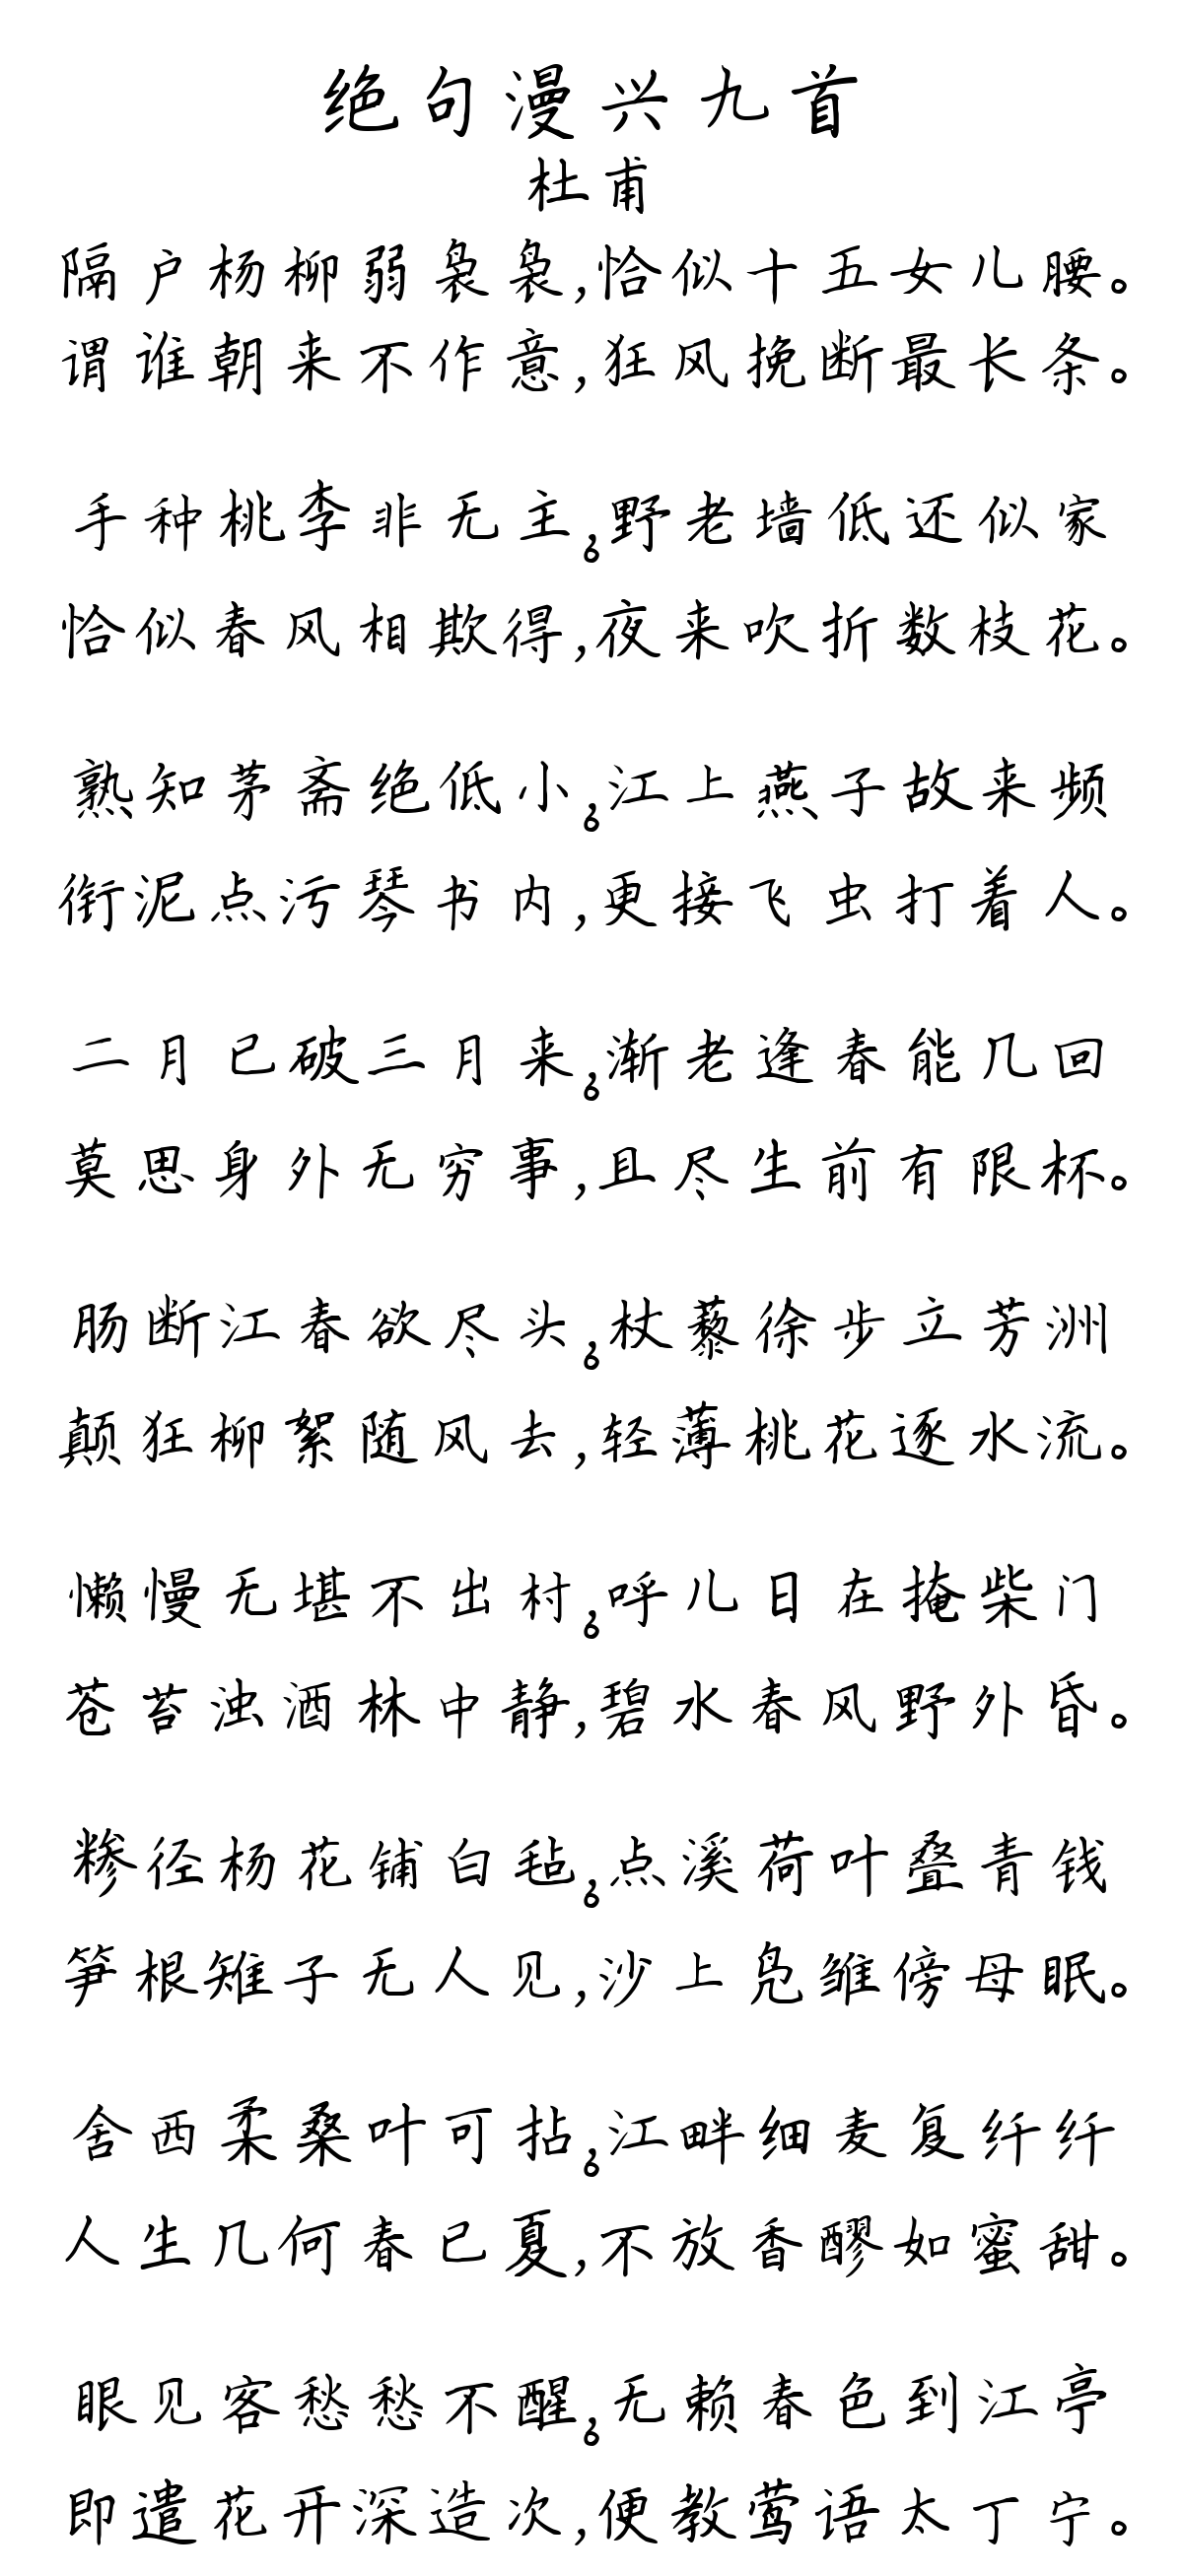 绝句漫兴九首
杜甫
隔户杨柳弱袅袅,恰似十五女儿腰。
谓谁朝来不作意,狂风挽断最长条。
手种桃李非无主,。野老墙低还似家
恰似春风相欺得,夜来吹折数枝花。
熟知茅斋绝低小,。江上燕子故来频
衔泥点污琴书内,更接飞虫打着人。
二月已破三月来,。渐老逢春能几回
莫思身外无穷事,且尽生前有限杯。
肠断江春欲尽头,。杖藜徐步立芳洲
颠狂柳絮随风去,轻薄桃花逐水流。
懒慢无堪不出村,。呼儿日在掩柴门
苍苔浊酒林中静,碧水春风野外昏。
糁径杨花铺白毡,。点溪荷叶叠青钱
笋根雉子无人见,沙上凫雏傍母眠。
舍西柔桑叶可拈,。江畔细麦复纤纤
人生几何春已夏,不放香醪如蜜甜。
眼见客愁愁不醒,。无赖春色到江亭
即遣花开深造次,便教莺语太丁宁。